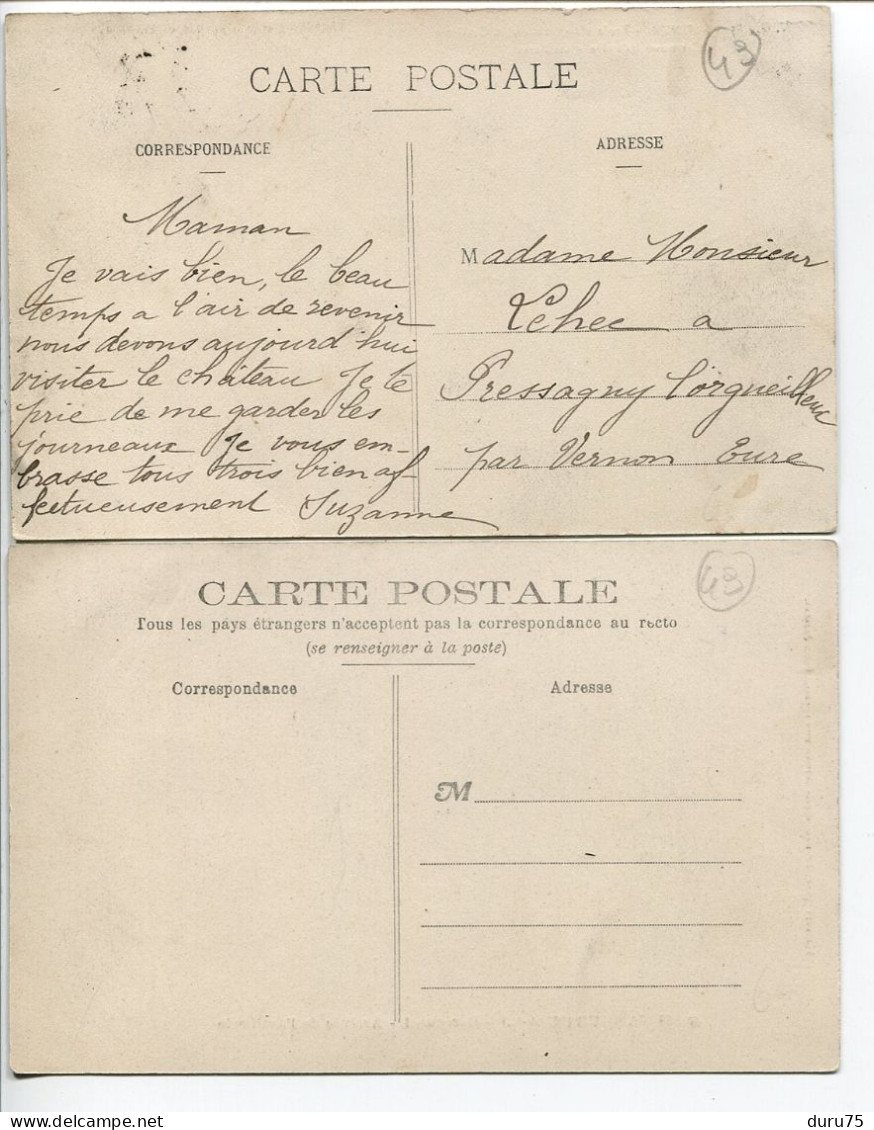 43
CARTE POSTALE
CORRESPONDANCE
ADRESSE
Maman
Je vais bien, le beau
temps a l'air de revenir
nous devons aujourd'hui
visiter le château Je te
prie de me garder les
journeaux Je vous em-
brasse tous trois bien af-
fectueusement Suzanne
Madame Monsieur
Lehec a
Pressagny l'orgueilleux
par Vernon Eure
43
CARTE POSTALE
Tous les pays étrangers n'acceptent pas la correspondance au recto
(se renseigner à la poste)
Correspondance
Adresse
M
duru75